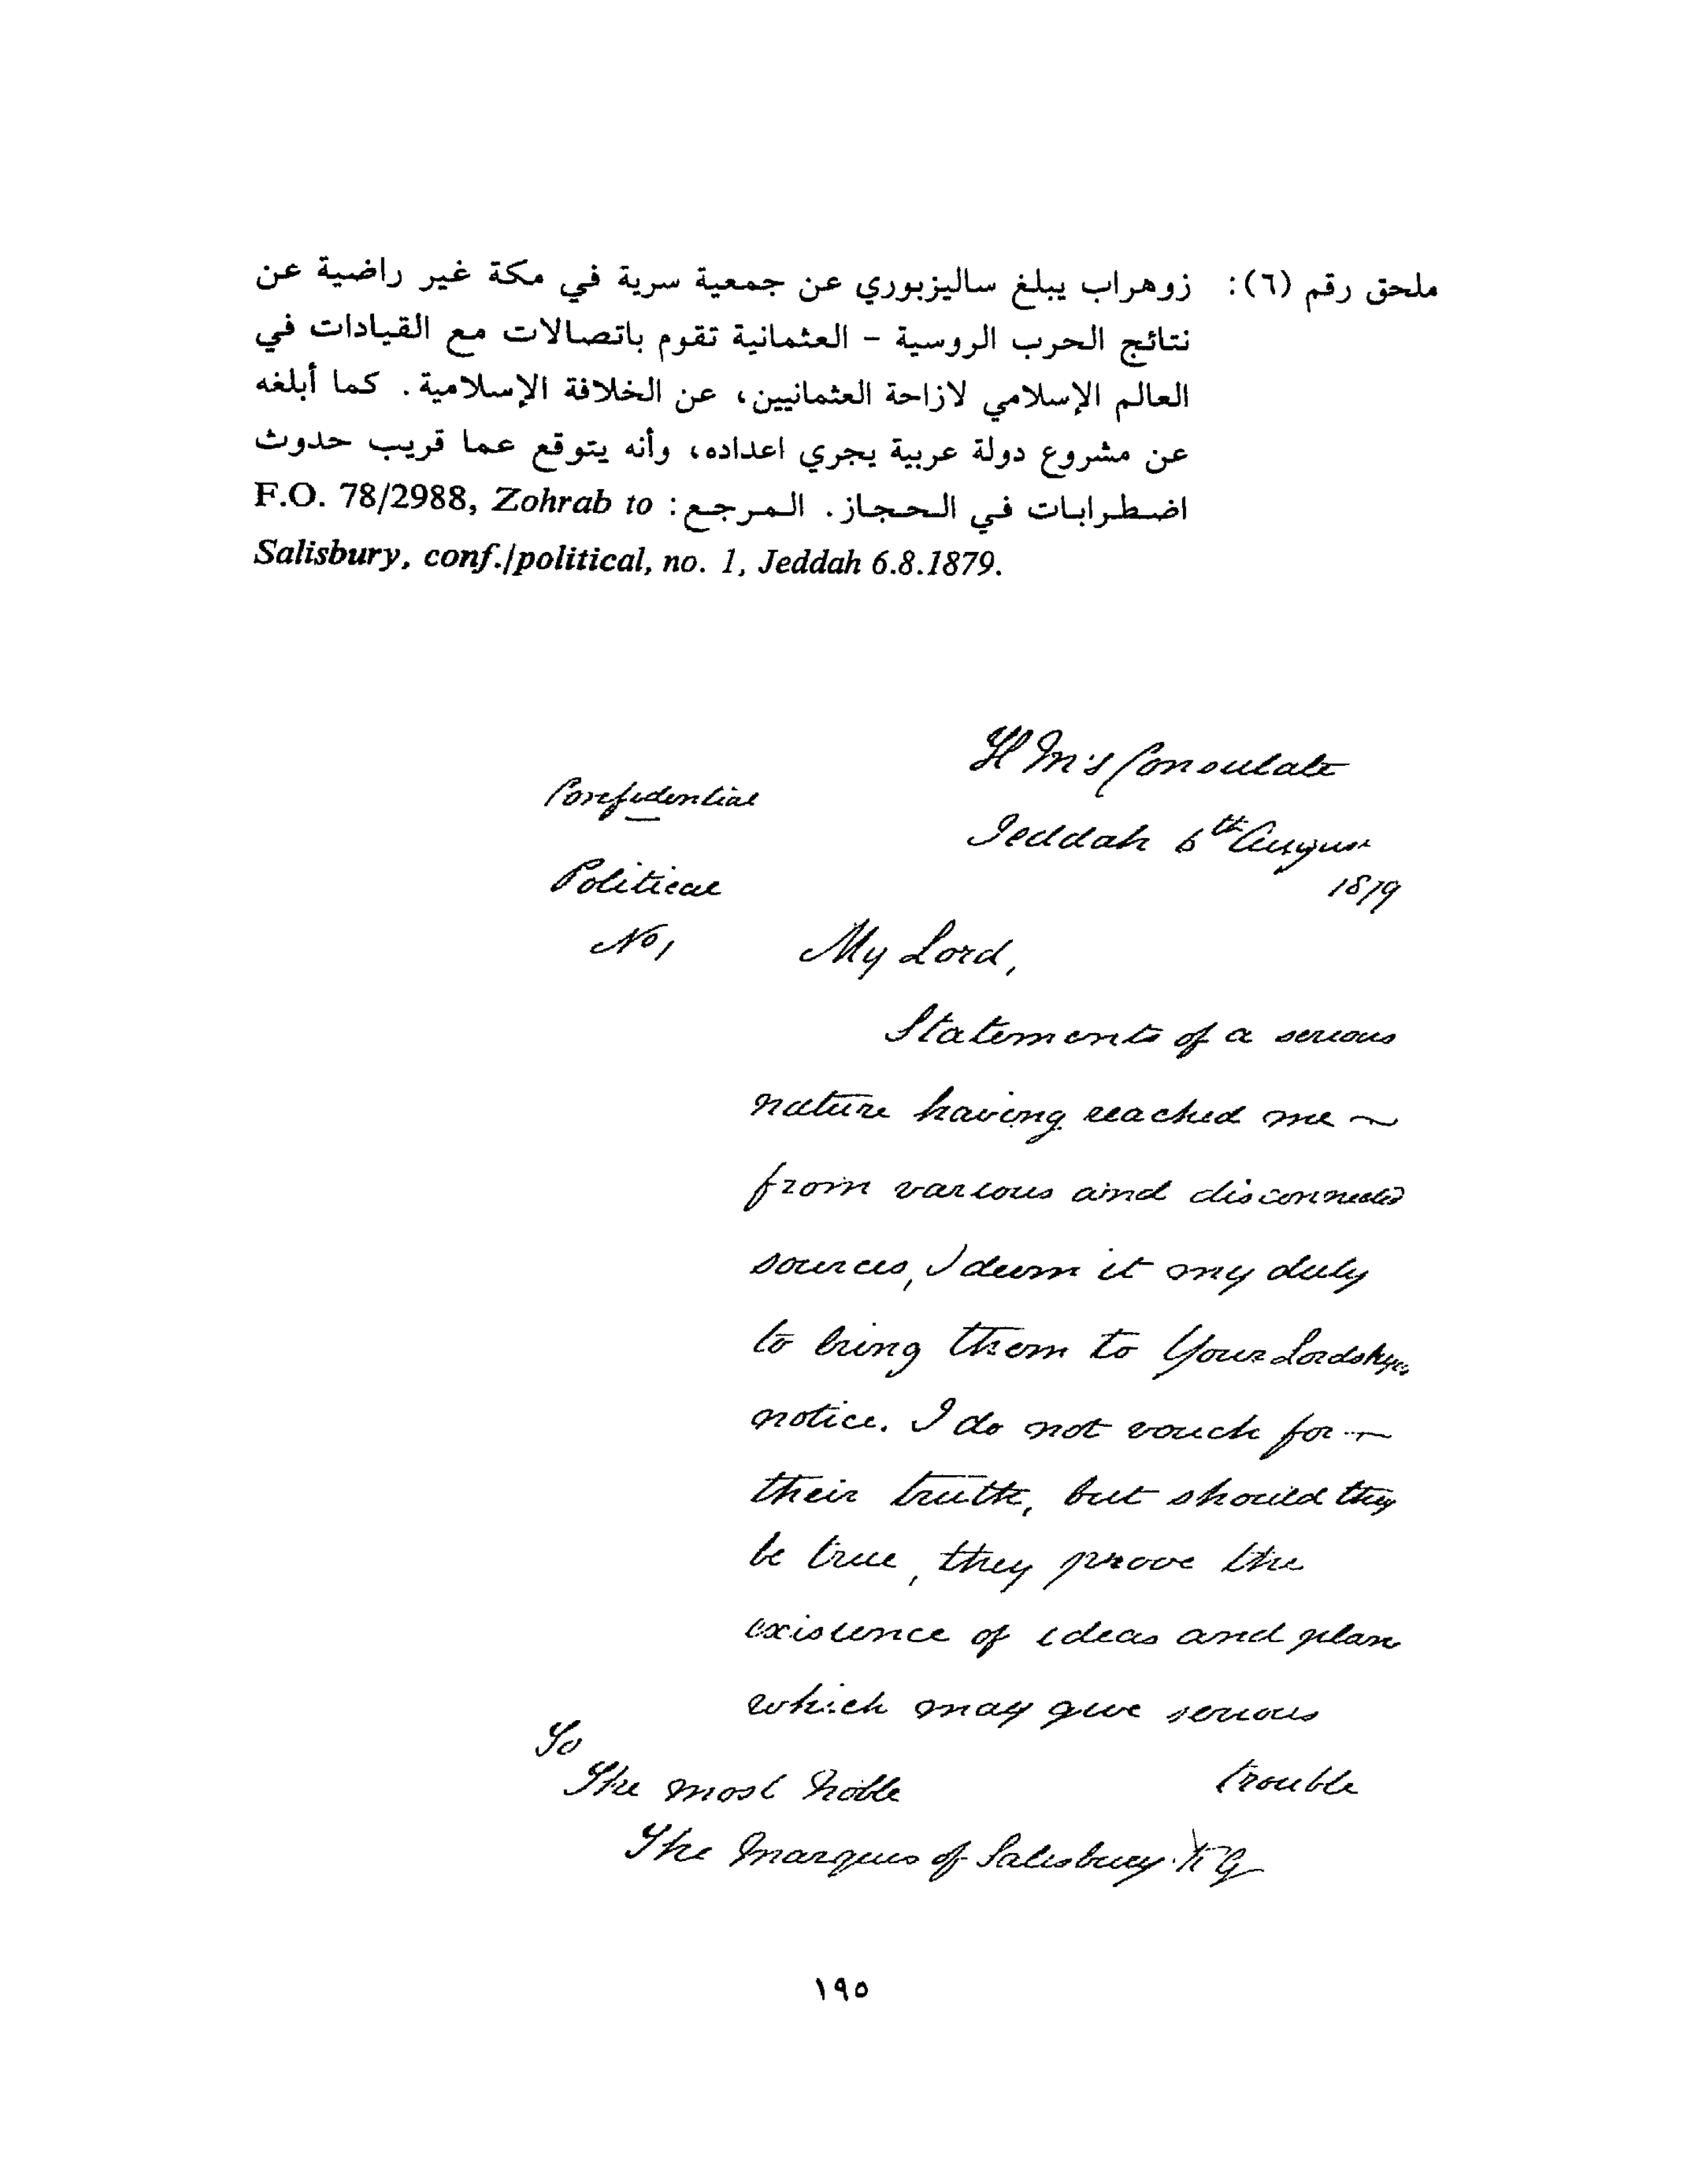 ملحق رقم (٦): زوهراب يبلغ ساليزبوري عن جمعية سرية في مكة غير راضية عن
نتائج الحرب الروسية - العثمانية تقوم باتصالات مع القيادات في
العالم الإسلامي لازاحة العثمانيين، عن الخلافة الإسلامية. كما أبلغه
عن مشروع دولة عربية يجري اعداده، وأنه يتوقع عما قريب حدوث
اضطرابات في الحجاز. المرجع: F.O. 78/2988, Zohrab to
Salisbury, conf./political, no. 1, Jeddah 6.8.1879.
H M's Consulate
Confidential
Jeddah 6th August
1879
Political
No 1
My Lord,
Statements of a serious
nature having reached me ~
from various and disconnected
sources, I deem it my duty
to bring them to Your Lordship's
notice. I do not vouch for
their truth, but should they
be true, they prove the
existence of ideas and plans
which may give serious
trouble
To
The most Noble
The Marquis of Salisbury K G
١٩٥